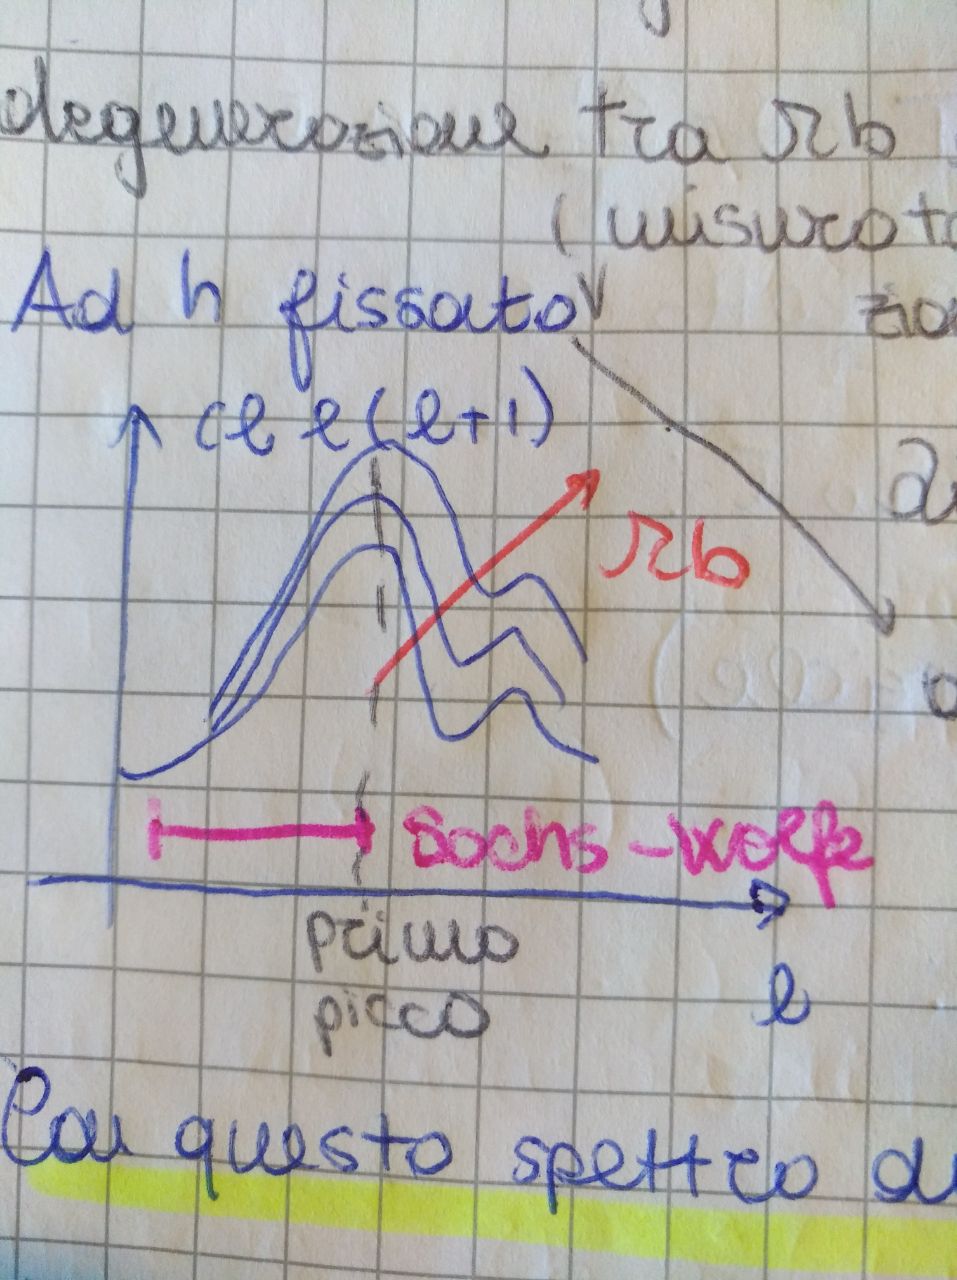 degenerazione tra Ωb
(misurat
Ad h fissato
zio
Cl l(l+1)
Ωb
Sachs-Wolfe
primo
picco
l
Con questo spettro di